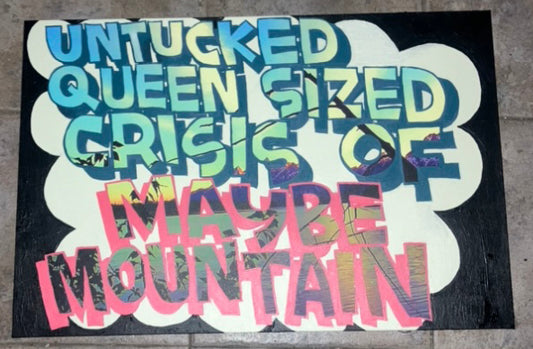 UNTUCKED
QUEEN SIZED
CRISIS OF
MAYBE
MOUNTAIN